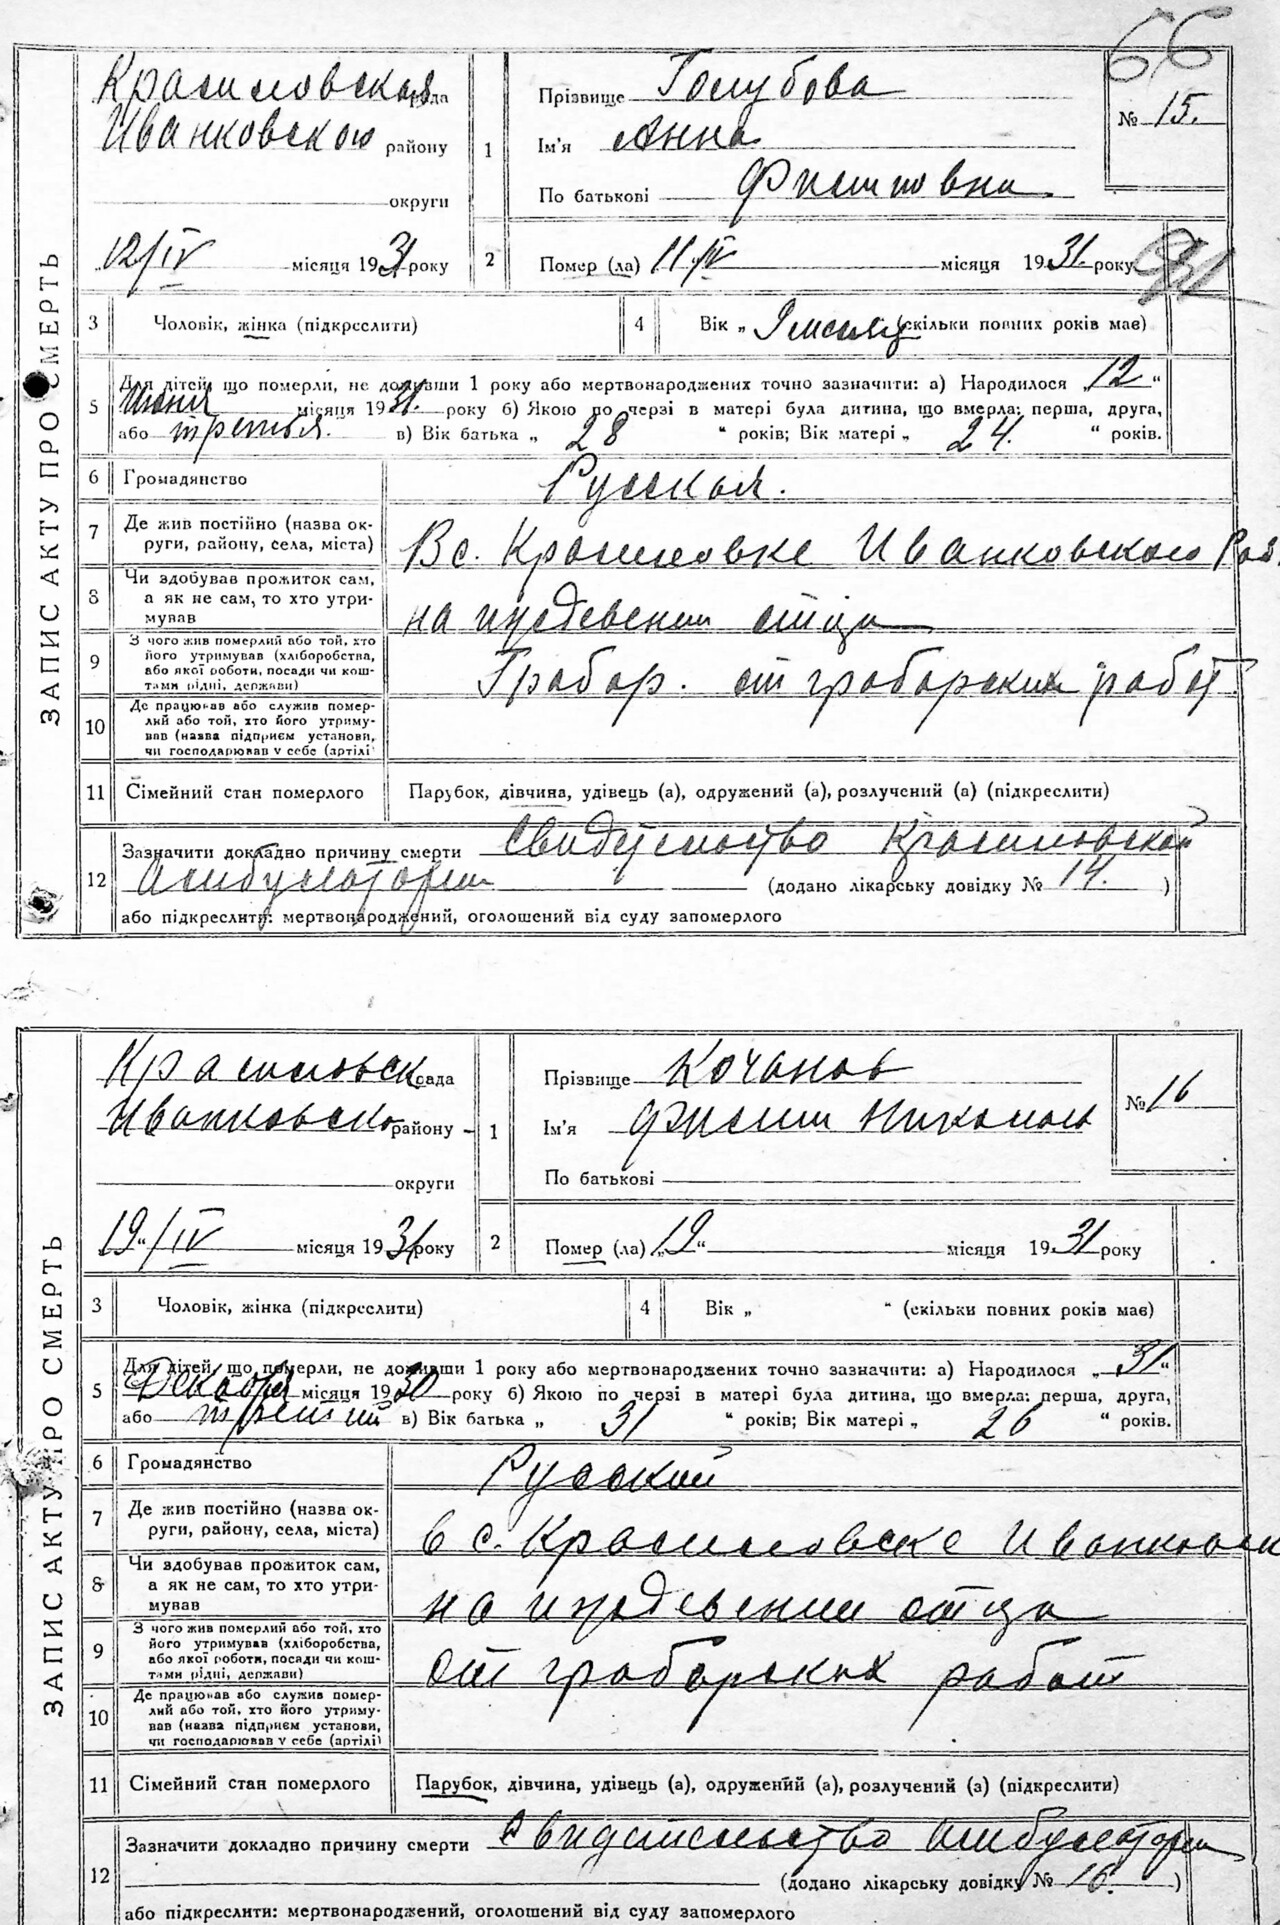 66
ЗАПИС АКТУ ПРО СМЕРТЬ
Красиловская рада
Иванковского району
округи
12/IV місяця 1931 року
1
Прізвище Голубова
Ім'я Анна
По батькові Филиповна
№ 15.
2
Помер (ла) 11/IV місяця 1931. року
3 Чоловік, жінка (підкреслити)
4 Вік „ 9 месяц (скільки повних років має)
5 Для дітей, що померли, не доживши 1 року або мертвонароджених точно зазначити: а) Народилося „12“
Июня місяця 1931. року б) Якою по черзі в матері була дитина, що вмерла: перша, друга,
або третья. в) Вік батька „ 28 “ років; Вік матері „ 24. “ років.
6 Громадянство Русская.
7 Де жив постійно (назва ок-
руги, району, села, міста) В с. Красиловке Иванковского Рай.
8 Чи здобував прожиток сам,
а як не сам, то хто утри-
мував на иждевении отца
9 З чого жив померлий або той, хто
його утримував (хліборобства,
або якої роботи, посади чи кош-
тами рідні, держави) Грабор. от граборских работ.
10 Де працював або служив помер-
лий або той, хто його утриму-
вав (назва підприєм установи,
чи господарював у себе (артілі)
11 Сімейний стан померлого Парубок, дівчина, удівець (а), одружений (а), розлучений (а) (підкреслити)
12 Зазначити докладно причину смерти Свидетельство Красиловской
Амбулатории (додано лікарську довідку № 14. )
або підкреслити: мертвонароджений, оголошений від суду запомерлого
ЗАПИС АКТУ ПРО СМЕРТЬ
Красиловск рада
Иванковско району
округи
19/IV місяця 1931 року
1
Прізвище Кочанов
Ім'я Филип Николаев
По батькові
№ 16
2
Помер (ла) „19“ місяця 1931 року
3 Чоловік, жінка (підкреслити)
4 Вік „ “ (скільки повних років має)
5 Для дітей, що померли, не доживши 1 року або мертвонароджених точно зазначити: а) Народилося „31“
Декабря місяця 1930 року б) Якою по черзі в матері була дитина, що вмерла: перша, друга,
або третий в) Вік батька „ 31 “ років; Вік матері „ 26 “ років.
6 Громадянство Русский
7 Де жив постійно (назва ок-
руги, району, села, міста) в с. Красиловске Иванковск
8 Чи здобував прожиток сам,
а як не сам, то хто утри-
мував на иждевении отца
9 З чого жив померлий або той, хто
його утримував (хліборобства,
або якої роботи, посади чи кош-
тами рідні, держави) от граборских работ
10 Де працював або служив помер-
лий або той, хто його утриму-
вав (назва підприєм установи,
чи господарював у себе (артілі)
11 Сімейний стан померлого Парубок, дівчина, удівець (а), одружений (а), розлучений (а) (підкреслити)
12 Зазначити докладно причину смерти Свидетельство Амбулатории
(додано лікарську довідку № 16. )
або підкреслити: мертвонароджений, оголошений від суду запомерлого